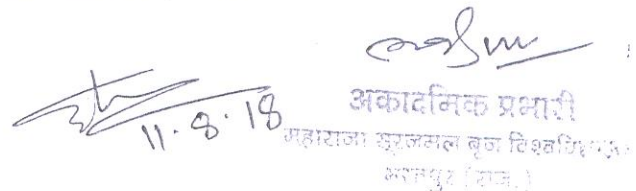 11.8.18
अकादमिक प्रभारी
महाराजा सूरजमल बृज विश्वविद्यालय
भरतपुर (राज.)